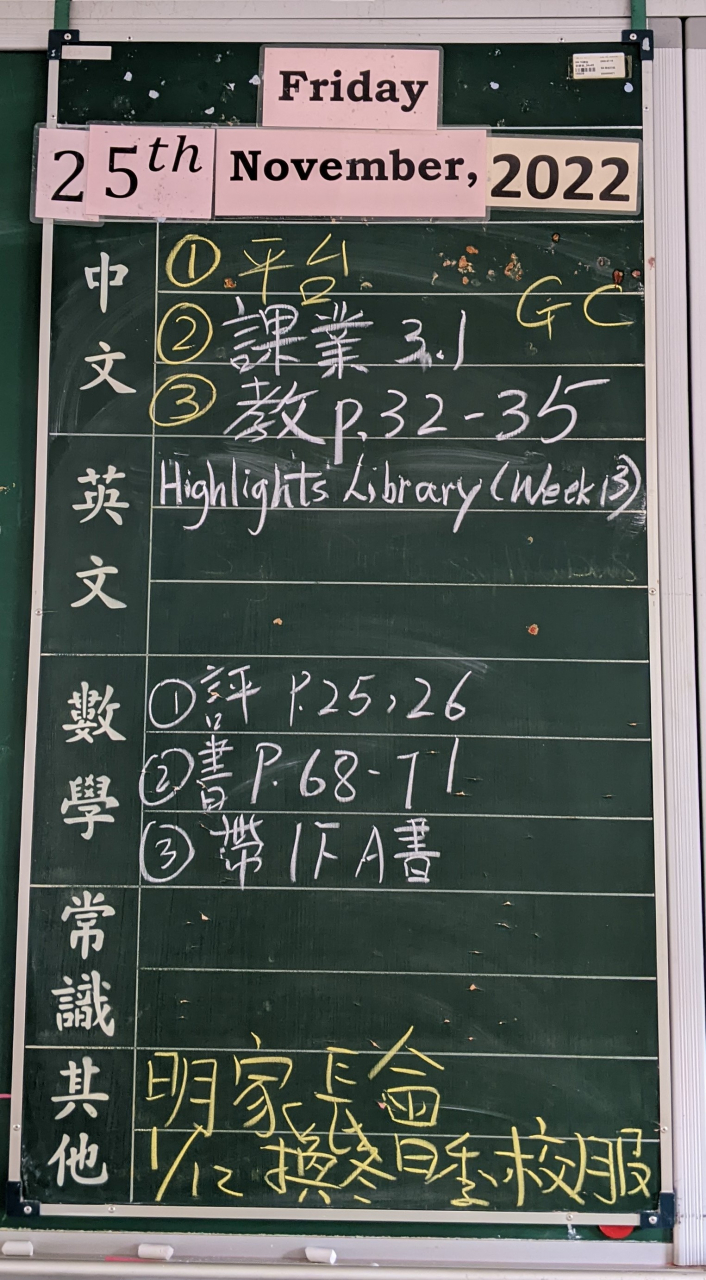 Friday
25th November, 2022
中文
① 平台
GC
② 課業 3.1
③ 教 p.32-35
英文
Highlights Library (Week 13)
數學
① 評 P.25,26
② 書 P.68-71
③ 帶 1下A書
常識
其他
明家長會
1/12 換冬季校服